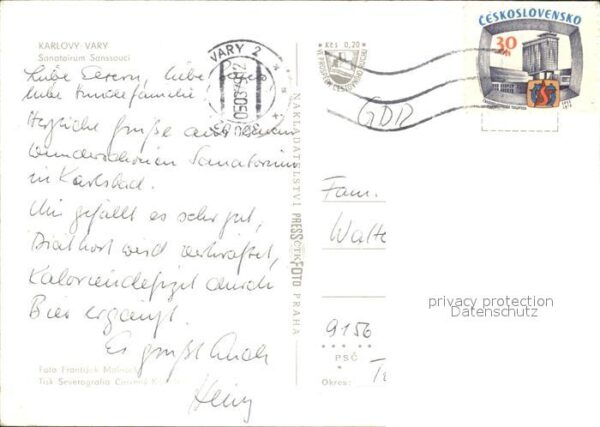 KARLOVY VARY
Sanatoirum Sanssouci
Liebe Eltern, liebe
liebe Hundefamilie
Herzliche Grüße aus einem
wunderschönen Sanatorium
in Karlsbad.
Mir gefällt es sehr gut,
Diätkost wird verkraftet,
Kaloriendefizit durch
Bier ergänzt.
Es grüßt Euch
Heinz
Foto František
Tisk Severografia Červený
NAKLADATELSTVÍ PRESSFOTO PRAHA
ČTK
VARY 2
Kčs 0,20
VE PROSPĚCH
ČESKOSLOVENSKO
30
GDR
Fam.
Walte
9156
PSČ
Okres:
privacy protection
Datenschutz